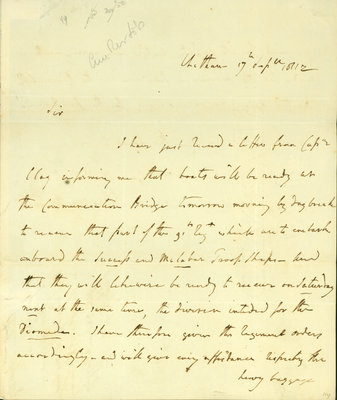 Chatham 17th Sepr 1812
Sir
I have just received a letter from Capt
Clay informing me that boats will be ready at
the Communication Bridge tomorrow morning by Daybreak
to receive that part of the 91st Regt which are to embark
onboard the Success and Malabar Troop Ships – And
that they will likewise be ready to receive on Saturday
next at the same time, the division intended for the
Diomede. I have therefore given the Regiment orders
accordingly – and will give every assistance respecting the
heavy baggage